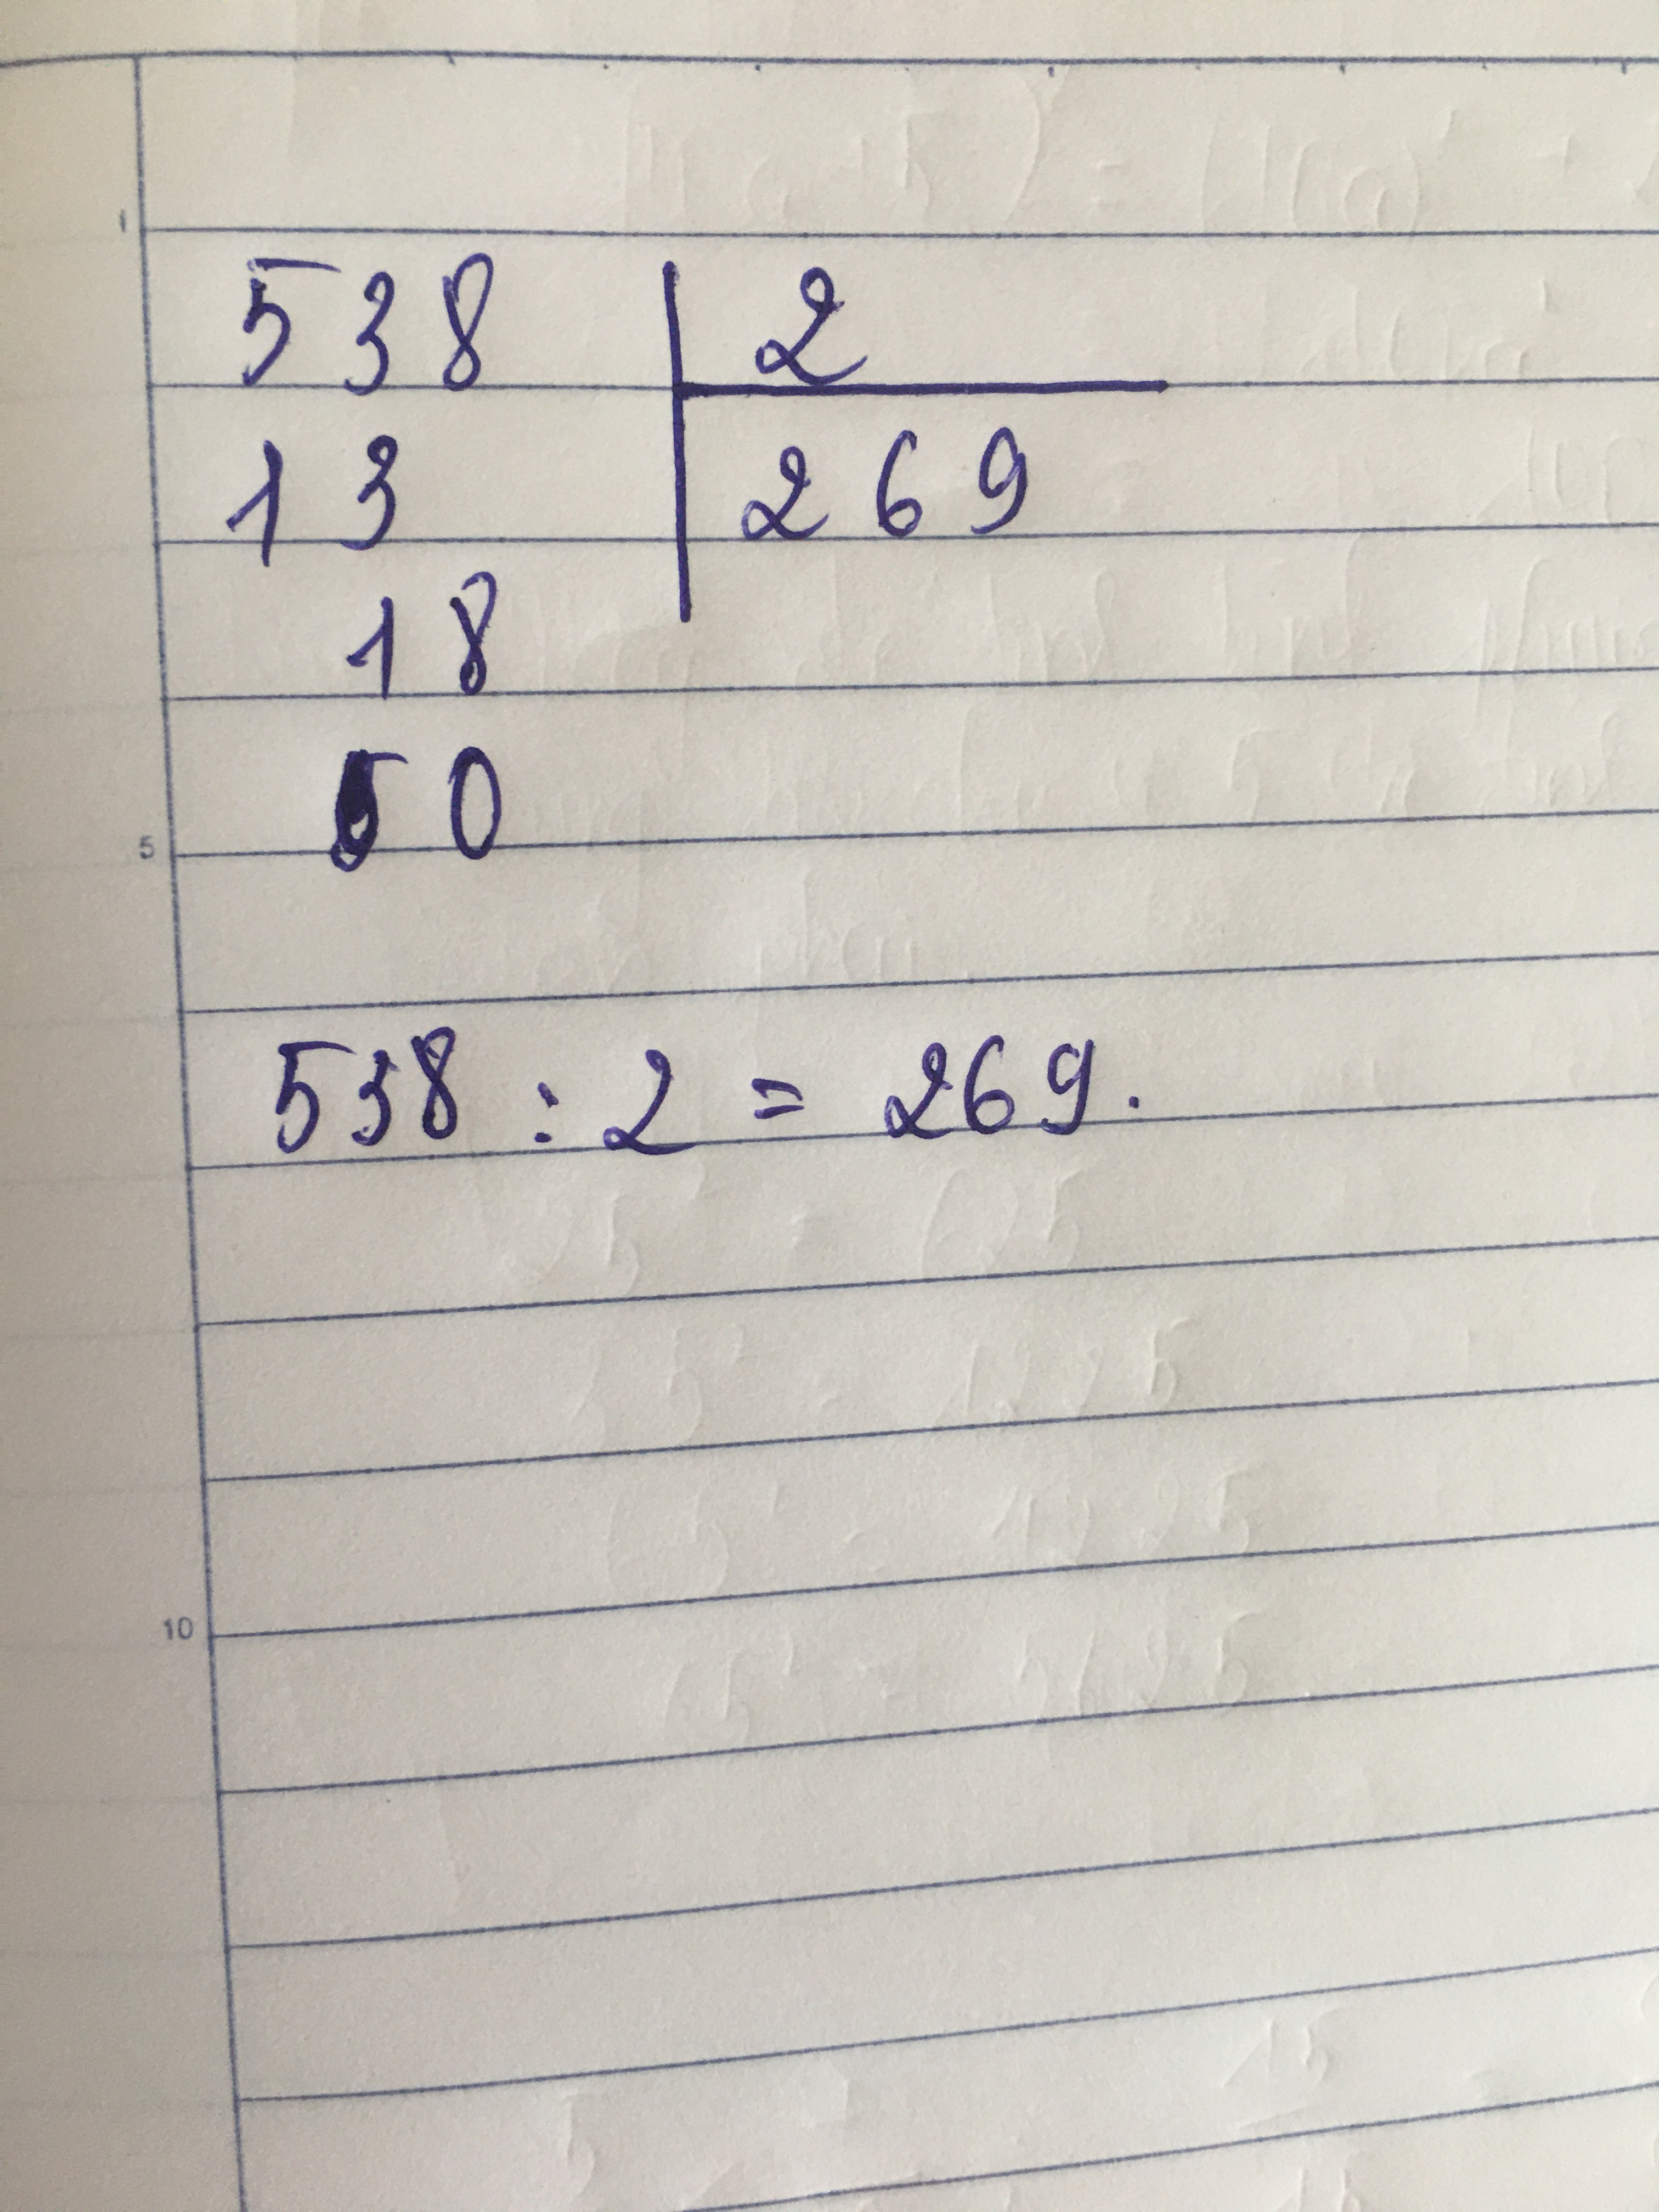 538 2
13 269
18
0
538 : 2 = 269.
1
5
10